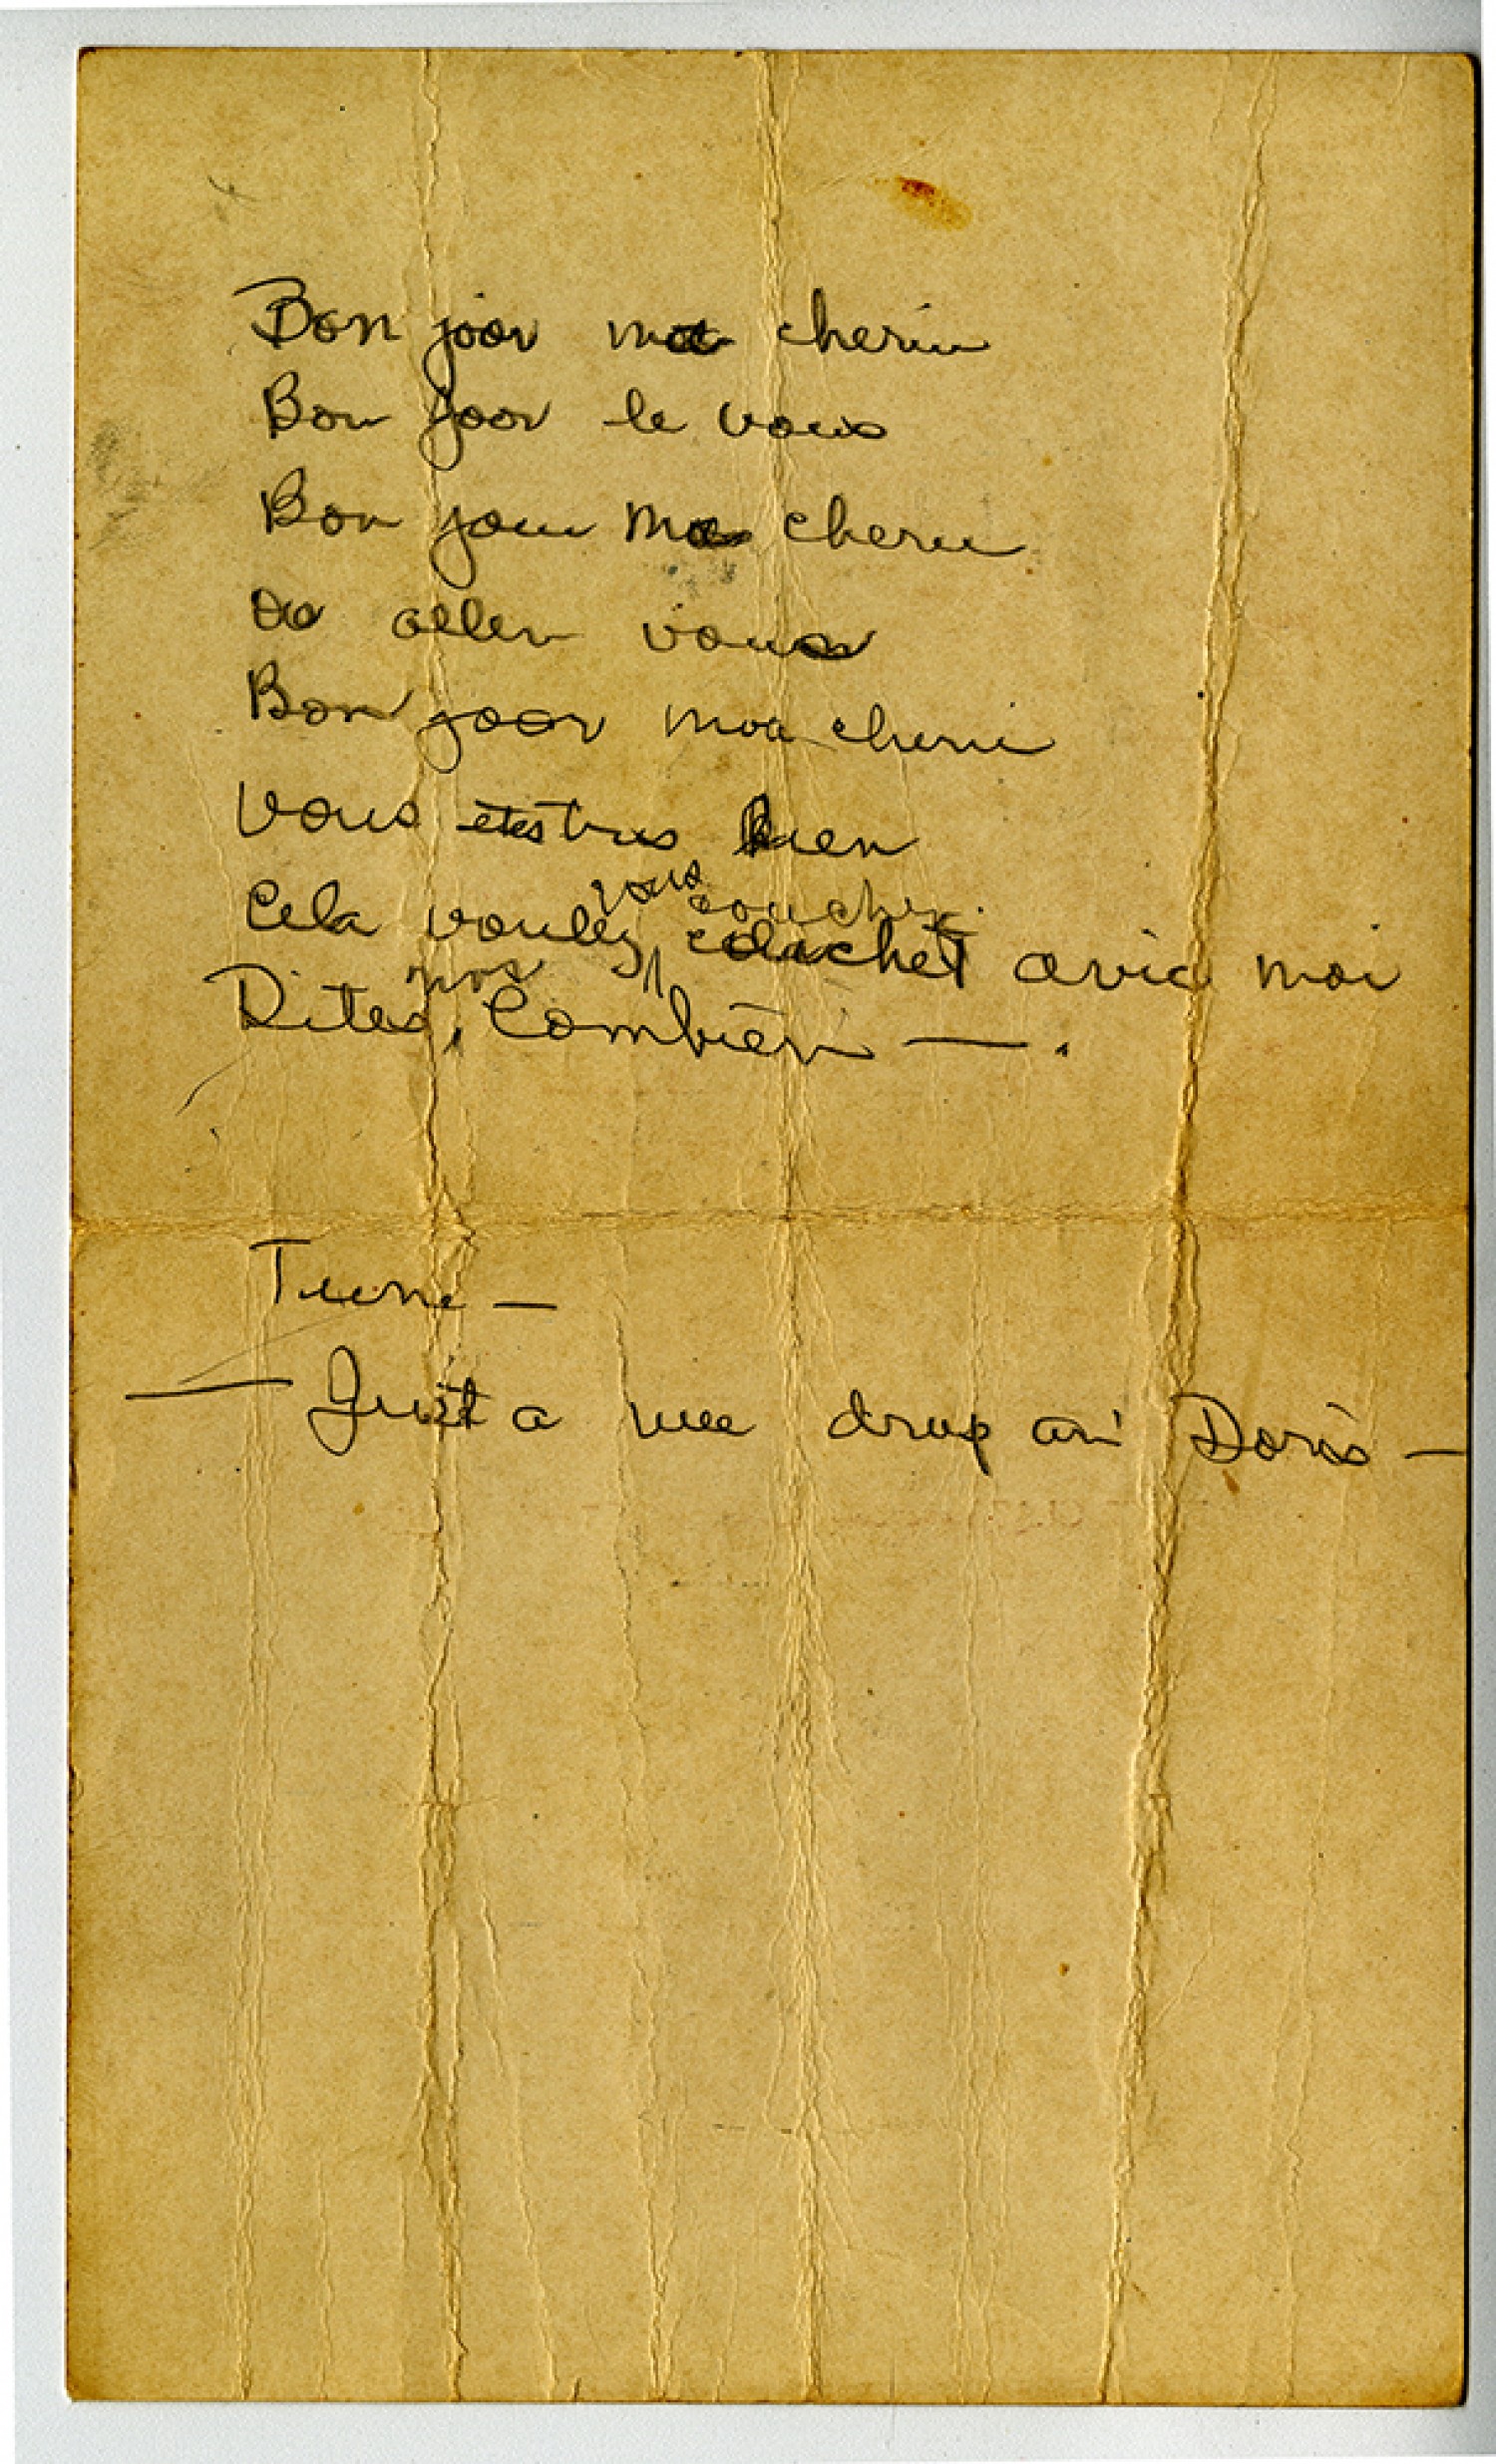 Bon joor ma cherie
Bon joor le vous
Bon jour Ma cherie
allen vous
Bon joor moa cherie
Vous etes tres bien
vous couchez
Cela voulez couchet avic moi
moi
Dites, Combien — .
Tune —
— Just a wee drop an' Doris —